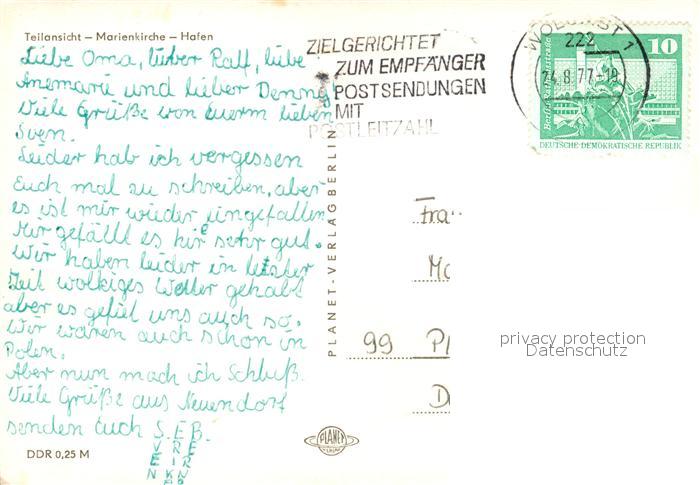 Teilansicht — Marienkirche — Hafen
Liebe Oma, lieber Ralf, liebe
Anemarie und lieber Denny
Viele Grüße von Euerm lieben
Sven.
Leider hab ich vergessen
Euch mal zu schreiben, aber
es ist mir wieder eingefallen
Mir gefällt es hir sehr gut.
Wir haben leider in letzter
Zeit wolkiges Wetter gehabt
aber es gefiel uns auch so.
Wir waren auch schon in
Polen.
Aber nun mach ich Schluß.
Viele Grüße aus Neuendorf
senden Euch S. E B.
VEN
RIKA
ERND
DDR 0,25 M
PLANET-VERLAG BERLIN
PLANET
VERLAG
ZIELGERICHTET
ZUM EMPFÄNGER
POSTSENDUNGEN
MIT
POSTLEITZAHL
WOLGAST 1
222
24.8.77-18
10
DEUTSCHE DEMOKRATISCHE REPUBLIK
Fra
Mo
99 Pl
D
privacy protection
Datenschutz